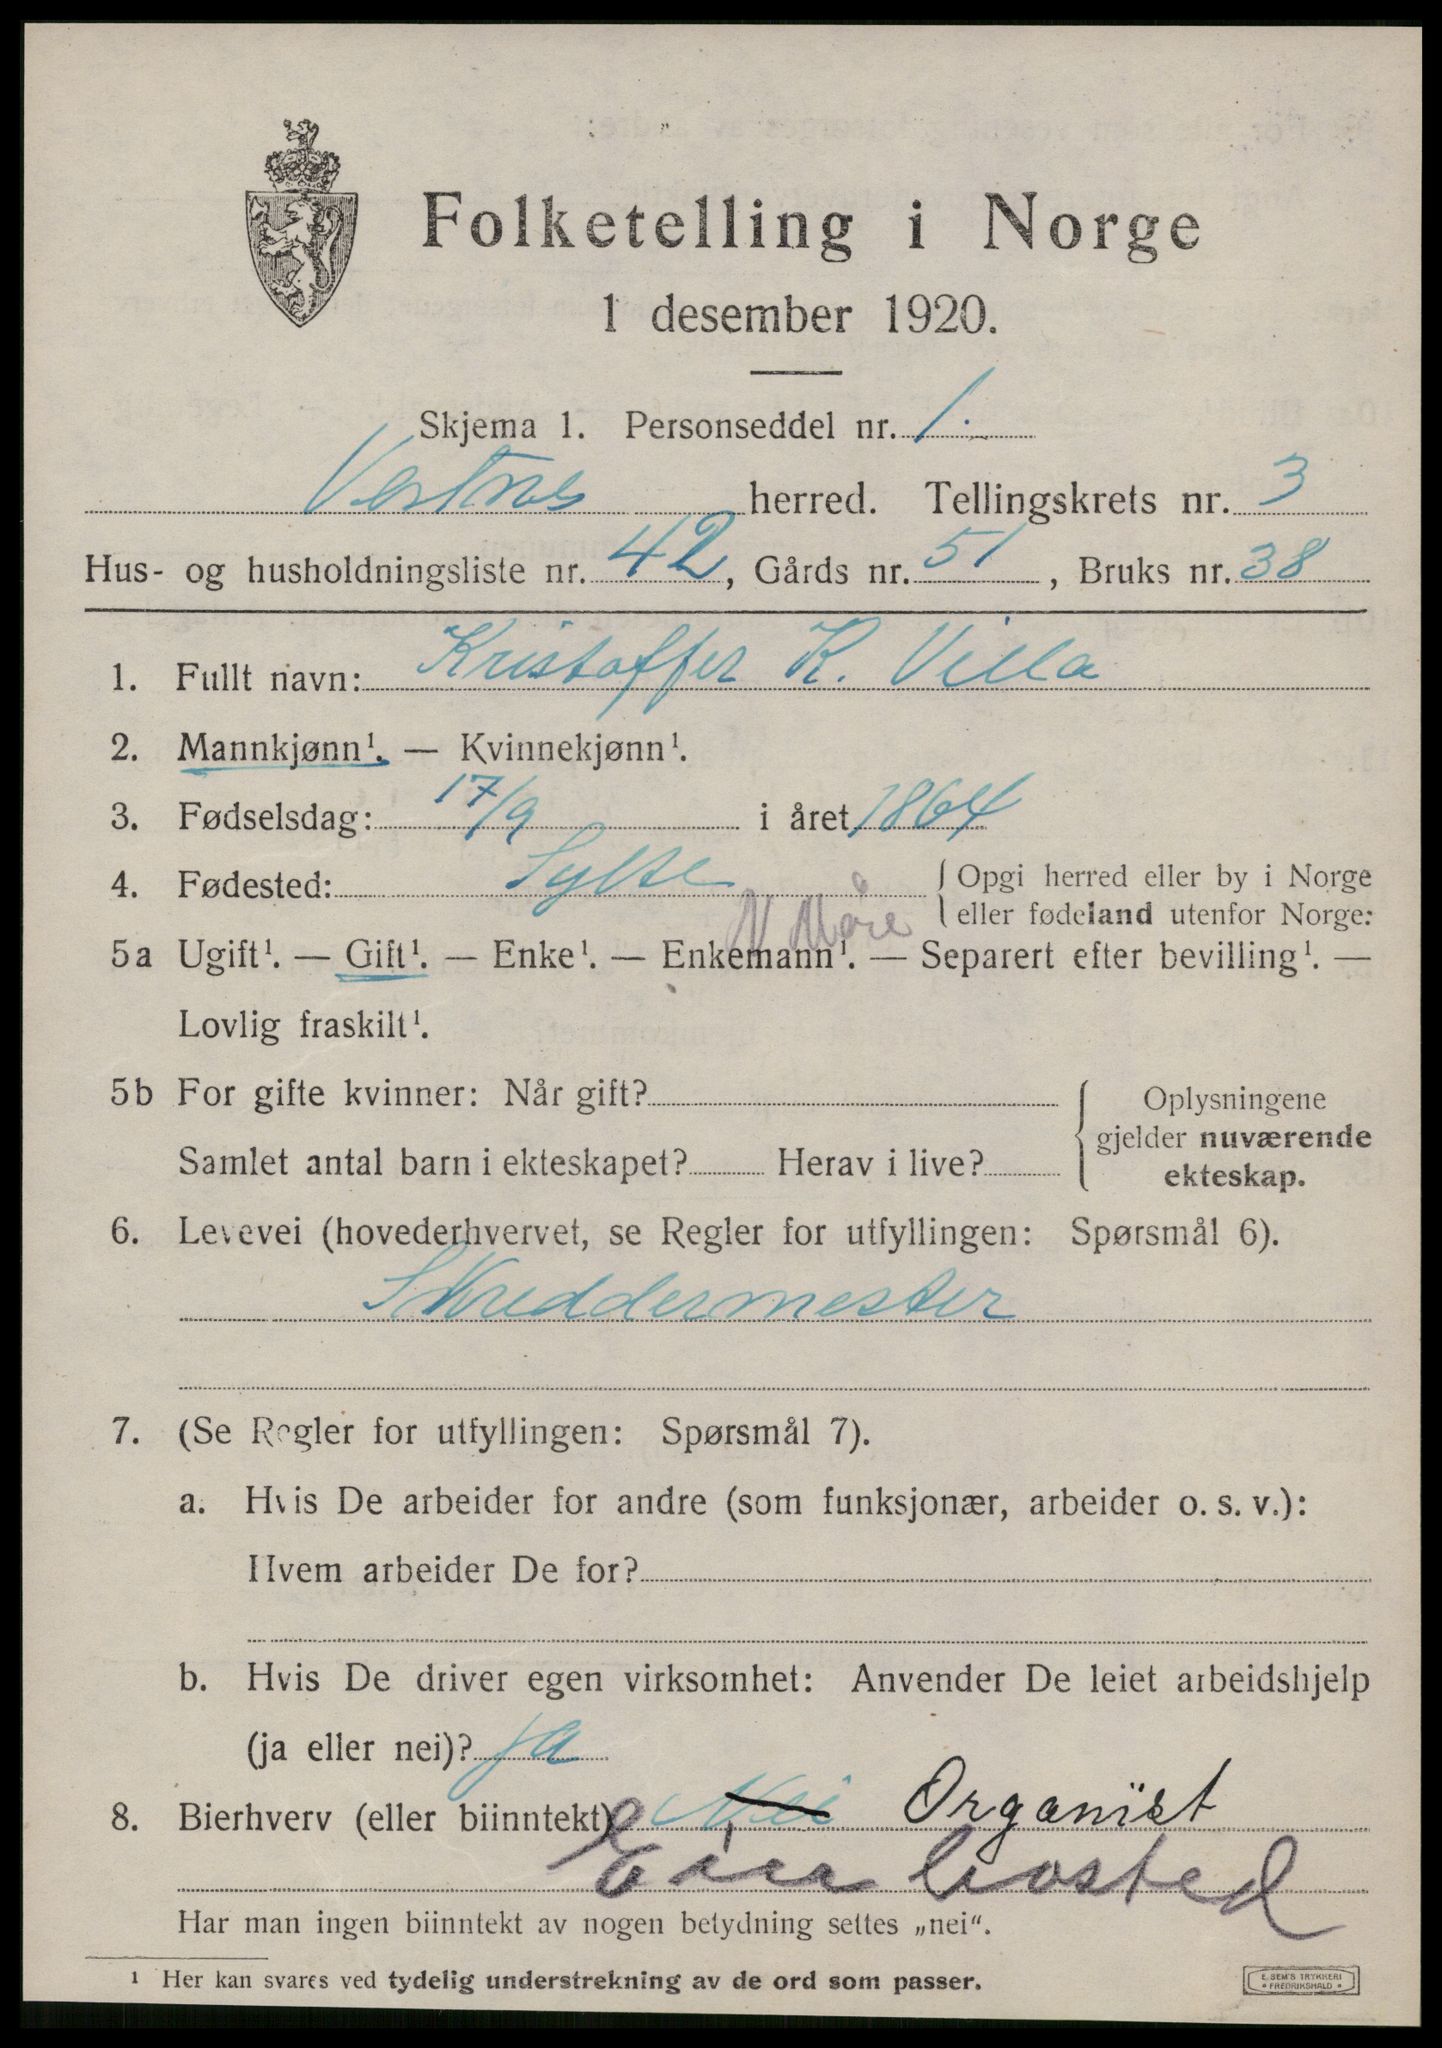 Folketelling i Norge
1 desember 1920.
Skjema 1. Personseddel nr. 1.
Vestnes herred. Tellingskrets nr. 3
Hus- og husholdningsliste nr. 42, Gårds nr. 51, Bruks nr. 38
1. Fullt navn: Kristoffer K. Villa
2. Mannkjønn¹. — Kvinnekjønn¹.
3. Fødselsdag: 17/9 i året 1864
4. Fødested: Sylte { Opgi herred eller by i Norge
eller fødeland utenfor Norge:
N Møre
5a Ugift¹. — Gift¹. — Enke¹. — Enkemann¹. — Separert efter bevilling¹. —
Lovlig fraskilt¹.
5b For gifte kvinner: Når gift?
Samlet antal barn i ekteskapet? Herav i live?
Oplysningene
gjelder nuværende
ekteskap.
6. Levevei (hovederhvervet, se Regler for utfyllingen: Spørsmål 6).
Skreddermester
7. (Se Regler for utfyllingen: Spørsmål 7).
a. Hvis De arbeider for andre (som funksjonær, arbeider o. s. v.):
Hvem arbeider De for?
b. Hvis De driver egen virksomhet: Anvender De leiet arbeidshjelp
(ja eller nei)? ja
8. Bierhverv (eller biinntekt) Nei Organist
Har man ingen biinntekt av nogen betydning settes „nei".
¹ Her kan svares ved tydelig understrekning av de ord som passer.
E. SEM'S TRYKKERI
FREDRIKSHALD